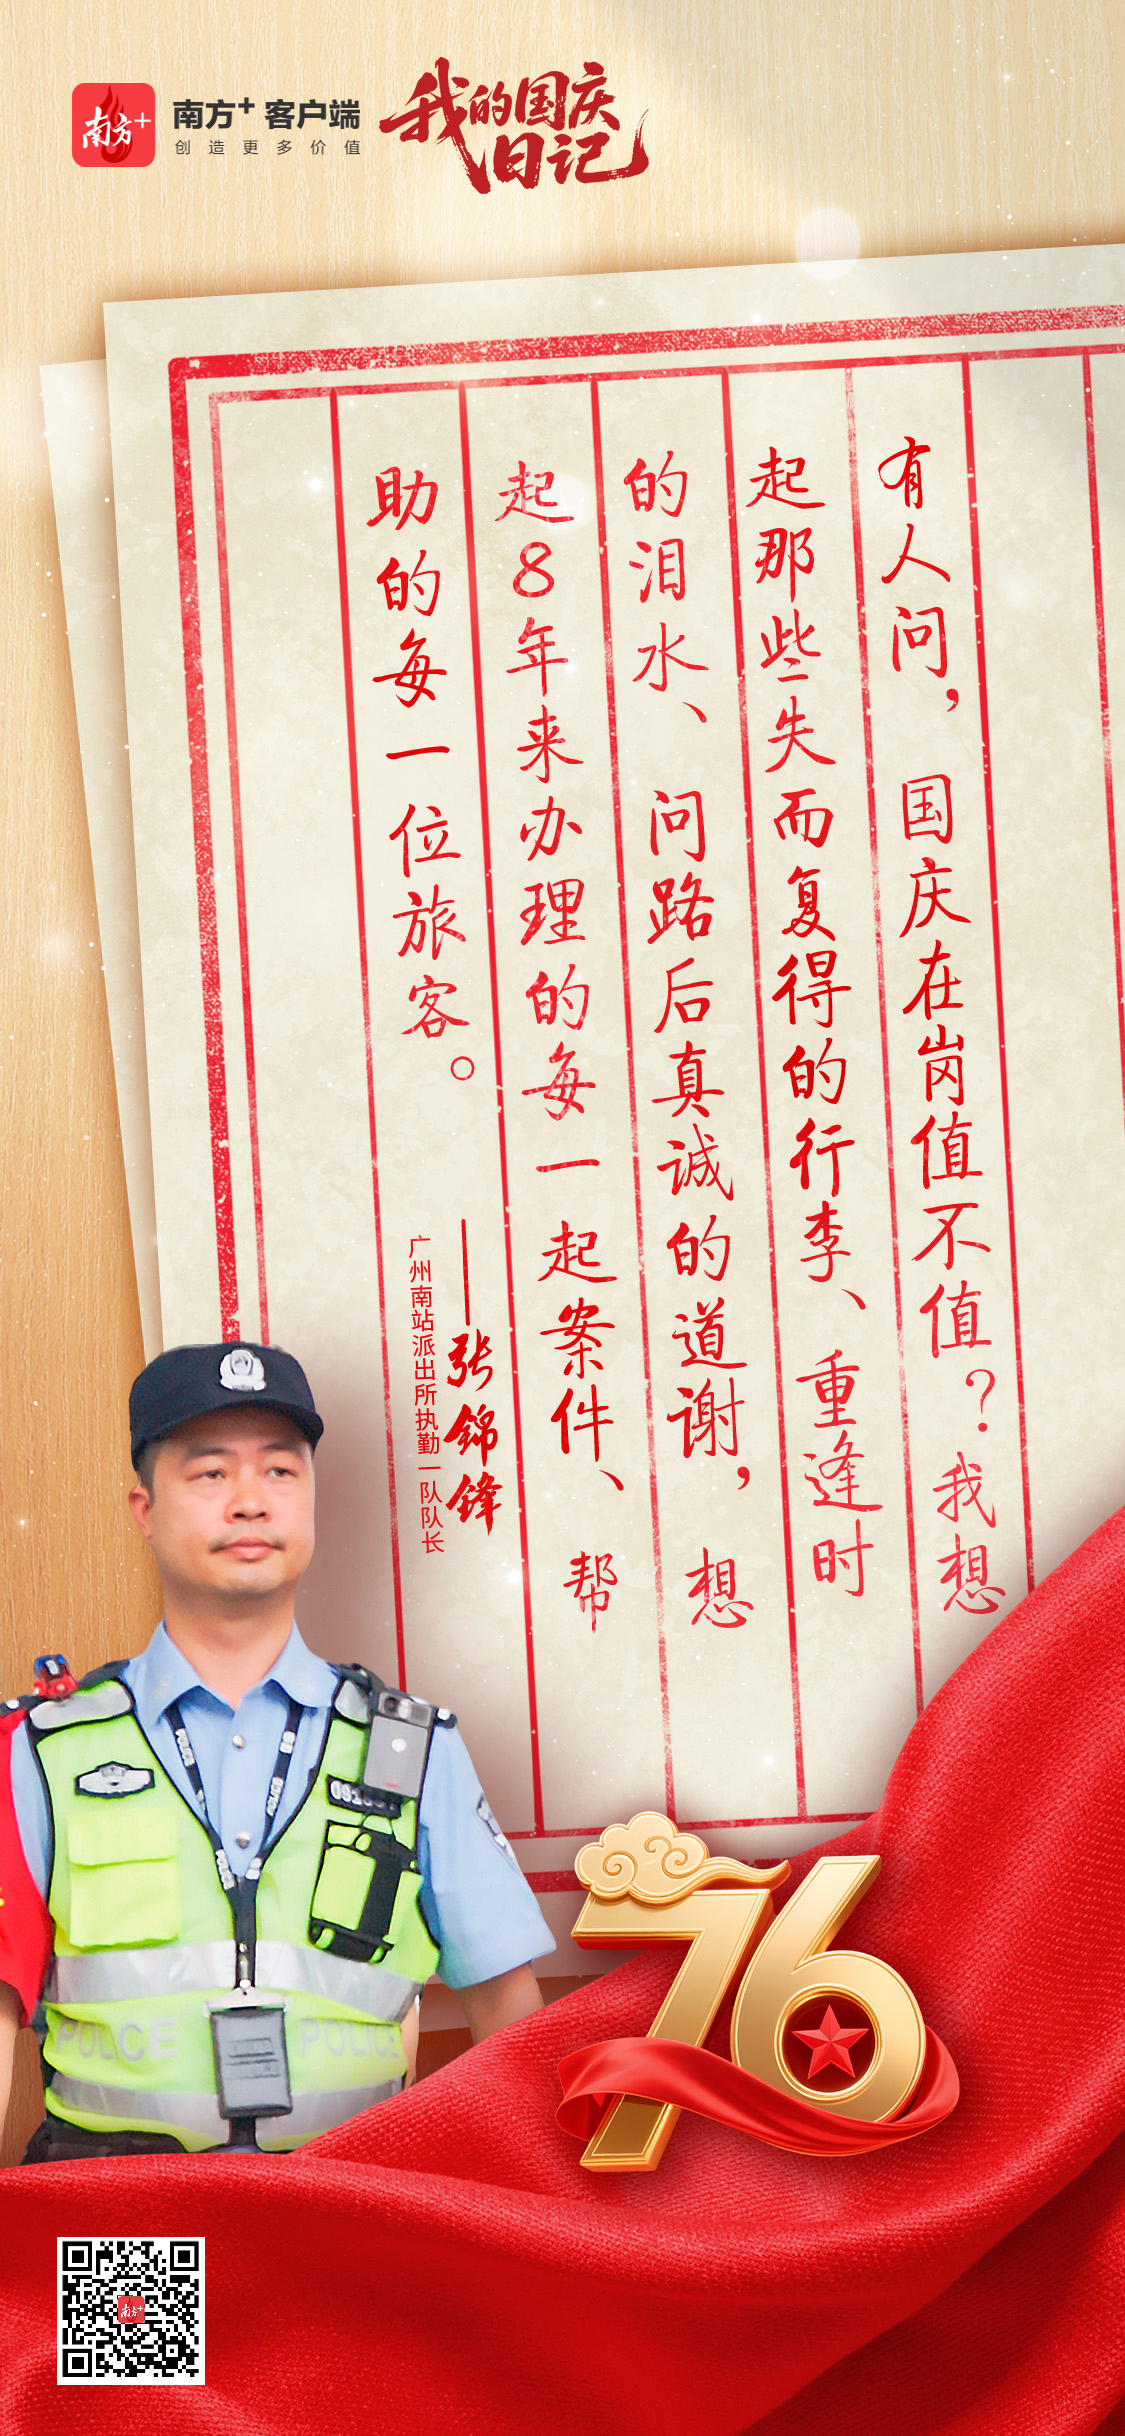 南方+
南方+ 客户端
创造更多价值
我的国庆
日记
有人问，国庆在岗值不值？我想
起那些失而复得的行李、重逢时
的泪水、问路后真诚的道谢，想
起8年来办理的每一起案件、帮
助的每一位旅客。
——张锦锋
广州南站派出所执勤一队队长
POLICE
POLICE
76
南方+